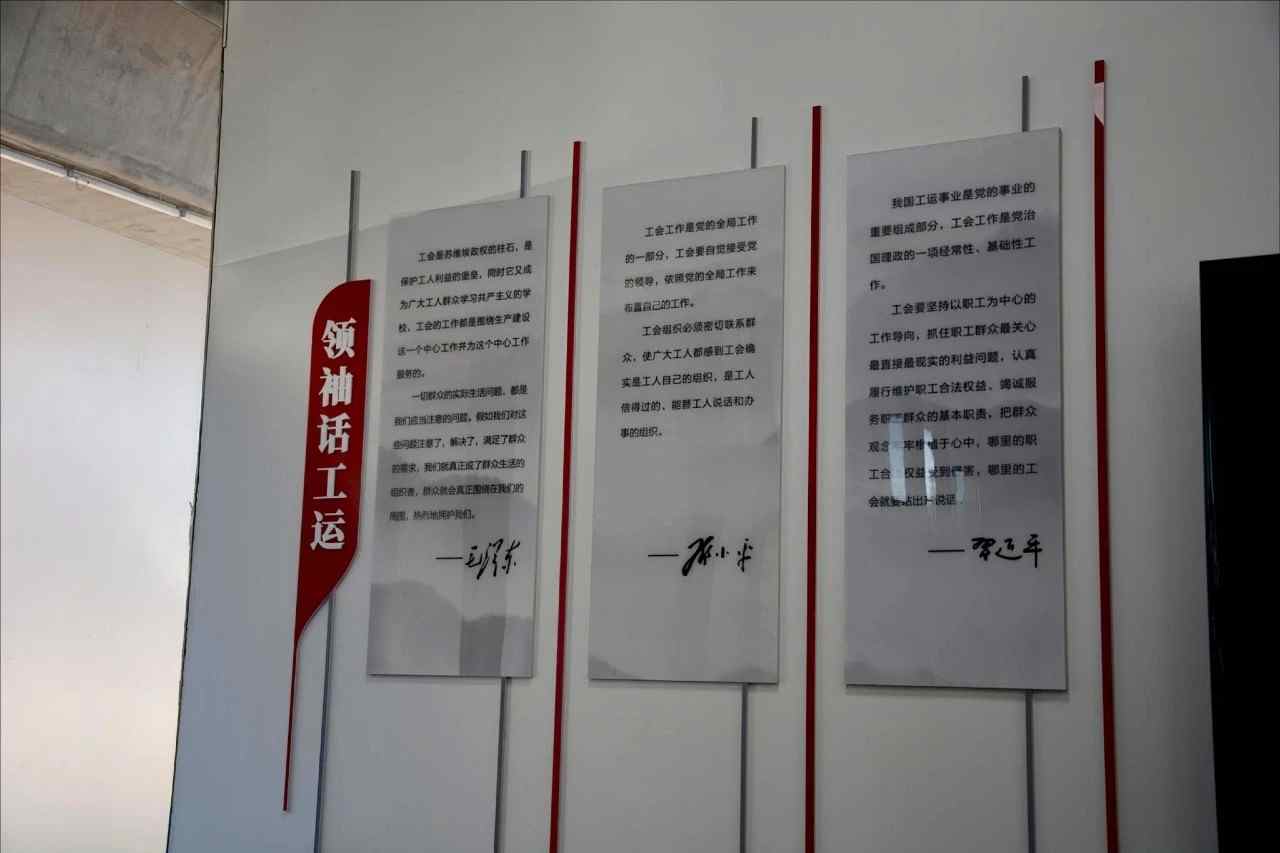 领袖话工运
工会是苏维埃政权的柱石，是
保护工人利益的堡垒，同时它又成
为广大工人群众学习共产主义的学
校，工会的工作都是围绕生产建设
这一个中心工作并为这个中心工作
服务的。
一切群众的实际生活问题，都是
我们应当注意的问题。假如我们对这
些问题注意了，解决了，满足了群众
的需求，我们就真正成了群众生活的
组织者，群众就会真正围绕在我们的
周围，热烈地拥护我们。
——毛泽东
工会工作是党的全局工作
的一部分，工会要自觉接受党
的领导，依照党的全局工作来
布置自己的工作。
工会组织必须密切联系群
众，使广大工人都感到工会确
实是工人自己的组织，是工人
信得过的、能替工人说话和办
事的组织。
——邓小平
我国工运事业是党的事业的
重要组成部分，工会工作是党治
国理政的一项经常性、基础性工
作。
工会要坚持以职工为中心的
工作导向，抓住职工群众最关心
最直接最现实的利益问题，认真
履行维护职工合法权益、竭诚服
务职工群众的基本职责，把群众
观念牢牢根植于心中，哪里的职
工合法权益受到侵害，哪里的工
会就要站出来说话。
——习近平